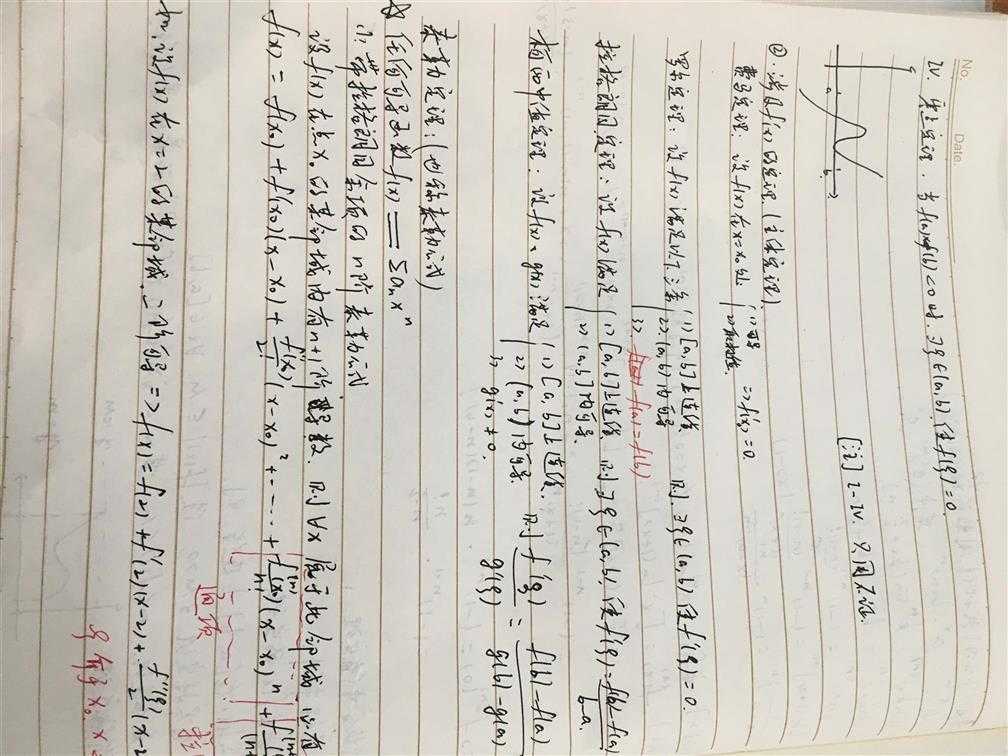 No.
Date.
IV. 零点定理: 当 f(a)·f(b)<0 时. ∃ξ∈(a,b), 使 f(ξ)=0
a b
[注] I-IV. 只用不证
② 涉及 f'(x) 的定理 (主体定理)
费马定理: 设 f(x) 在 x=x₀ 处 (1) 可导 (2) 取极值 => f'(x₀)=0.
罗尔定理: 设 f(x) 满足以下三条 (1) [a,b] 上连续 (2) (a,b) 内可导 (3) f(a)=f(b) 则 ∃ξ∈(a,b) 使 f'(ξ)=0.
拉格朗日定理: 设 f(x) 满足 (1) [a,b] 上连续 (2) (a,b) 内可导. 则 ∃ξ∈(a,b), 使 f'(ξ)=f(b)-f(a)/b-a.
柯西中值定理: 设 f(x)、g(x) 满足 (1) [a,b] 上连续. (2) (a,b) 内可导 (3) g'(x)≠0. 则 f'(ξ)/g'(ξ) = f(b)-f(a)/g(b)-g(a)
泰勒定理: (也称泰勒公式)
☆ 任何可导函数 f(x) = Σaₙxⁿ
(1). 带拉格朗日余项的 n 阶泰勒公式
设 f(x) 在点 x₀ 的某邻域内有 n+1 阶导数. 则 ∀x 属于此邻域 均有
f(x) = f(x₀) + f'(x₀)(x-x₀) + f''(x₀)/2!(x-x₀)² + ···· + f⁽ⁿ⁾(x₀)/n!(x-x₀)ⁿ +
设 f(x) 在 x=2 的某邻域 二阶可导 => f(x) = f(2) + f'(2)(x-2) + f''(ξ)/2(x-2
ξ介于 x₀, x